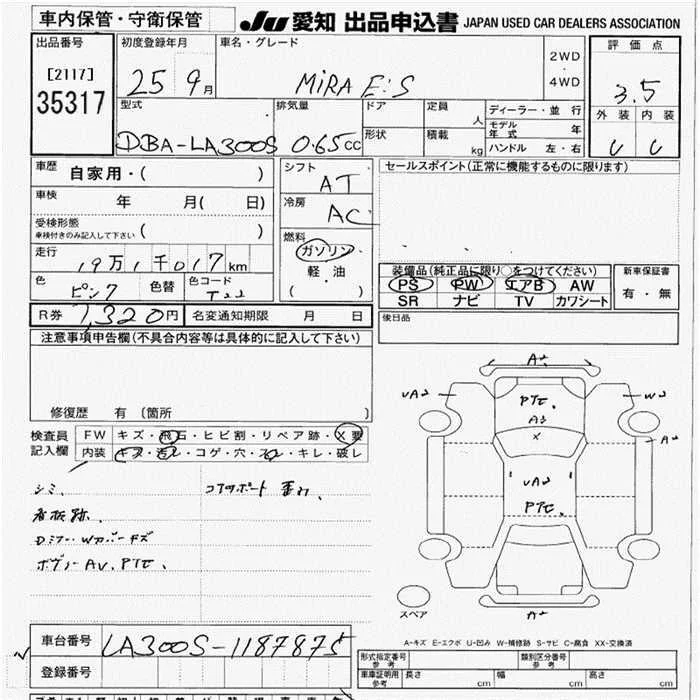 車内保管・守衛保管
JU 愛知 出品申込書 JAPAN USED CAR DEALERS ASSOCIATION
出品番号
[2117]
35317
初度登録年月
25 9月
車名・グレード
MiRA E:S
2WD
・
4WD
評価点
3.5
外装 内装
C C
型式
DBA-LA300S
排気量
0.65cc
ドア
形状
定員 人
積載 kg
ディーラー・並行
モデル年式 年
ハンドル 左・右
車歴
自家用・( )
車検
年 月( 日)
受検形態
車検付きのみ記入して下さい ( )
走行
19万1千017km
色
ピンク
色替
色コード
シフト
AT
冷房
AC
燃料
ガソリン
軽・油
( )
セールスポイント(正常に機能するものに限ります)
装備品(純正品に限り○をつけてください)
PS PW エアB AW
SR ナビ TV カワシート
新車保証書
有・無
R券 7,320円 名変通知期限 月 日
後日品
注意事項申告欄(不具合内容等は具体的に記入して下さい)
修復歴 有 (箇所 )
検査員
記入欄
FW キズ・飛石・ヒビ割・リペア跡・X要
内装 キズ・汚レ・コゲ・穴・スレ・キレ・破レ
シミ、
看板跡、
Dミラー Wカバーキズ
ボディー AU、PTE、
A2
UA2
W2
PTE、
A3
X
A2
UA2
PTE、
A2
スペア
A-キズ E-エクボ U-凹み W-補修跡 S-サビ C-腐食 XX-交換済
車台番号 LA300S-1187875
登録番号
型式指定番号
参考
類別区分番号
参考
車庫証明用
参考
長さ cm 幅 cm 高さ cm